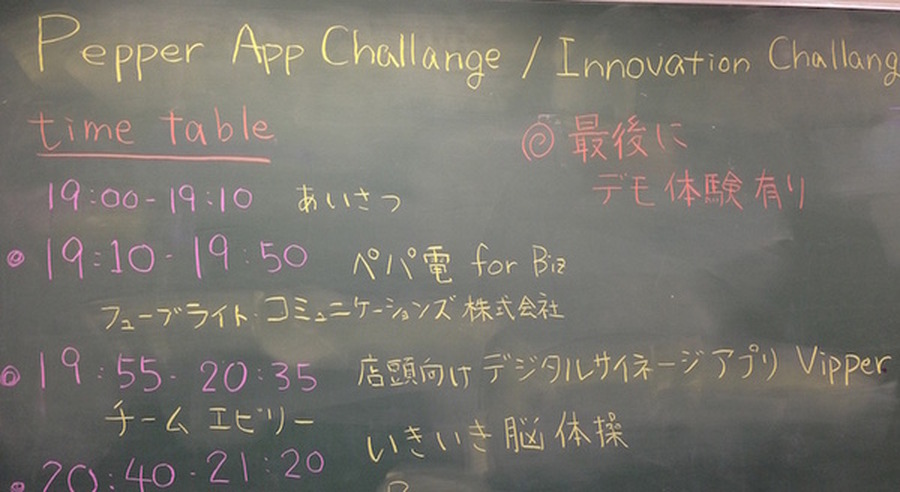 Pepper App Challange / Innovation Challang
time table
◎ 最後に
デモ体験有り
19:00-19:10 あいさつ
19:10-19:50 ペパ電 for Biz
フューブライト・コミュニケーションズ株式会社
19:55-20:35 店頭向けデジタルサイネージアプリ Vipper
チーム エビリー
いきいき脳体操
20:40-21:20